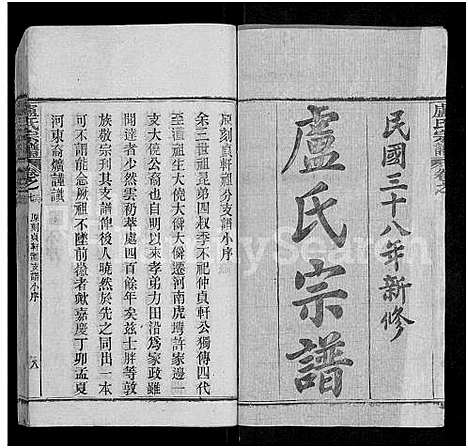 民國三十八年新修
盧氏宗譜
盧氏宗譜
原刻貞軒祖分支譜小序
余三世祖昆弟四叔季不祀仲貞軒公獨傳四代
至瀆祖生大僥大僯大僯遷河南虎塆許家邊一
支大僥公裔也自明以來孝弟力田沿爲家政雖
聞達者少然雲礽華處四百餘年矣茲士胖等敦
族敬宗刋其支譜俾後人於先之同出一本
可不謂能念厥祖不墜前徽者歟嘉慶丁卯孟夏
河東裔
謹識
盧氏宗譜
原刻貞軒祖支譜小序
八